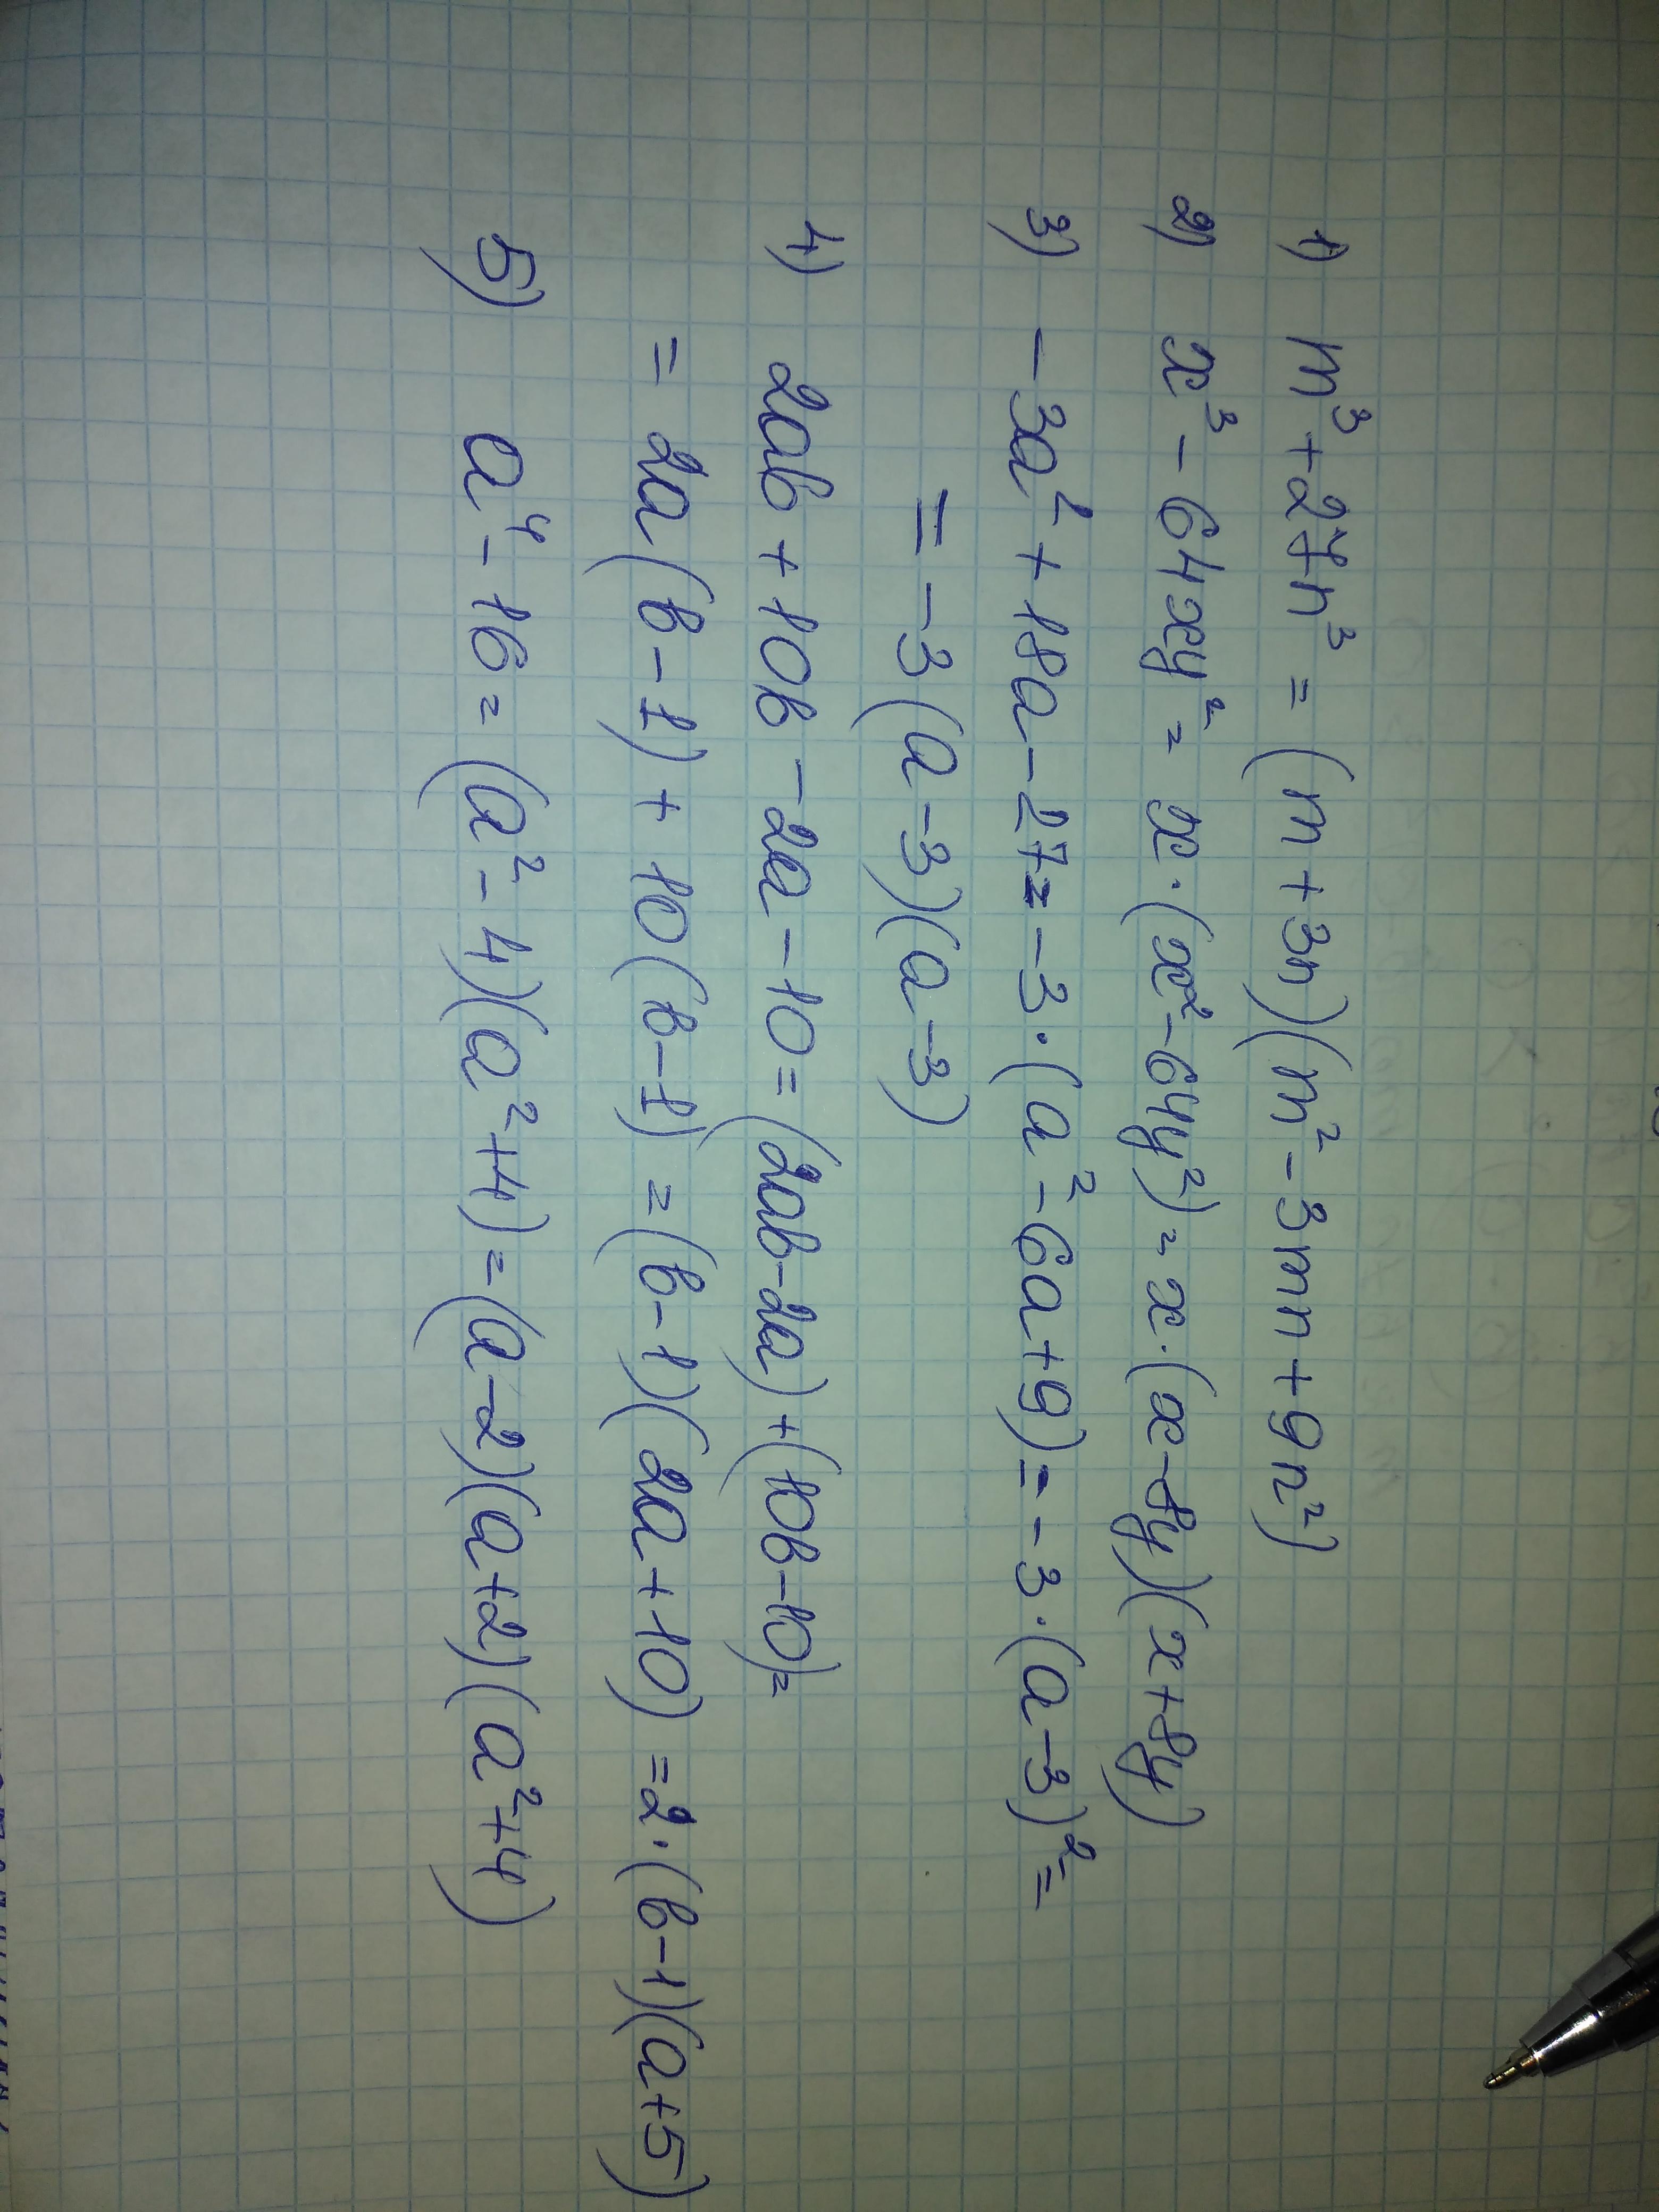 1) m³ + 27n³ = (m + 3n)(m² - 3mn + 9n²)
2) x³ - 64xy² = x · (x² - 64y²) = x · (x - 8y)(x + 8y)
3) -3a² + 18a - 27 = -3 · (a² - 6a + 9) = -3 · (a - 3)² =
= -3(a - 3)(a - 3)
4) 2ab + 10b - 2a - 10 = (2ab - 2a) + (10b - 10) =
= 2a(b - 1) + 10(b - 1) = (b - 1)(2a + 10) = 2 · (b - 1)(a + 5)
5) a⁴ - 16 = (a² - 4)(a² + 4) = (a - 2)(a + 2)(a² + 4)